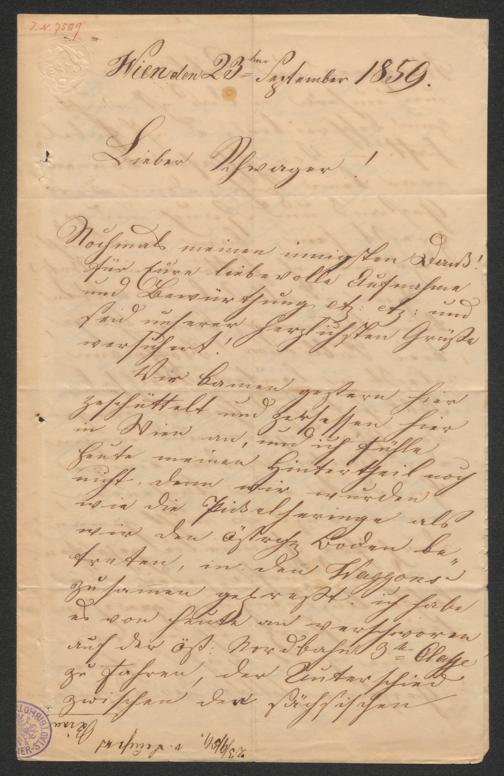 J. N. 7589
Wien den 23ten September 1859.
Lieber Schwager!
Nochmals meinen innigsten Dank!
für Eure liebevolle Aufnahme
und Bewürthung etz: etz: und
seid unserer herzlichsten Grüße
versichert!
Wir kamen gestern hier
zerschüttelt und zersessen hier
in Wien an, und ich fühle
heute meinen Hintertheil noch
nicht, denn wir wurden
wie die Pickelheringe als
wir den östr: Boden be„
traten, in den Waggons
zusamen gepreßt. ich habe
es von heute an verschworen
auf der öst: Nordbahn 3te Classe
zu fahren, der Unterschied
zwischen der sächsischen
23/9/59